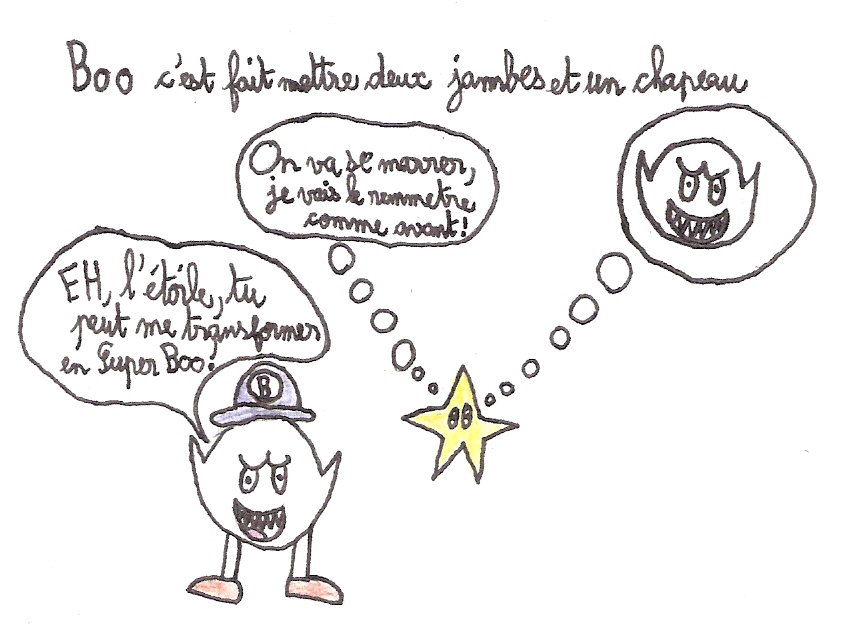 Boo c'est fait mettre deux jambes et un chapeau
On va se marrer,
je vais le remmetre
comme avant!
EH, l'étoile, tu
peut me transformer
en Super Boo?
B